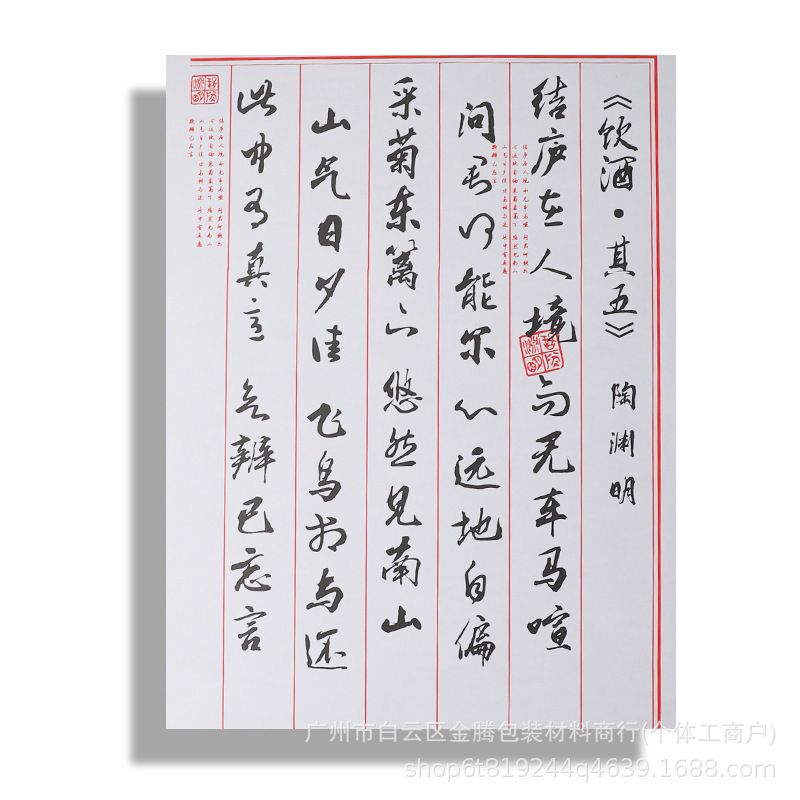 《饮酒·其五》 陶渊明
结庐在人境 而无车马喧
问君何能尔 心远地自偏
采菊东篱下 悠然见南山
山气日夕佳 飞鸟相与还
此中有真意 欲辨已忘言
广州市白云区金腾包装材料商行(个体工商户)
shop6t819244q4639.1688.com